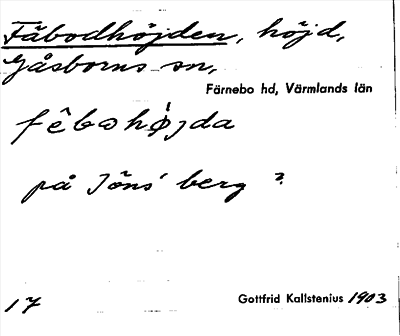 Fäbodhöjden, höjd,
Gåsborns sn,
Färnebo hd, Värmlands län
fêbωhø̀jda
på Jöns' berg ?
17 Gottfrid Kallstenius 1903